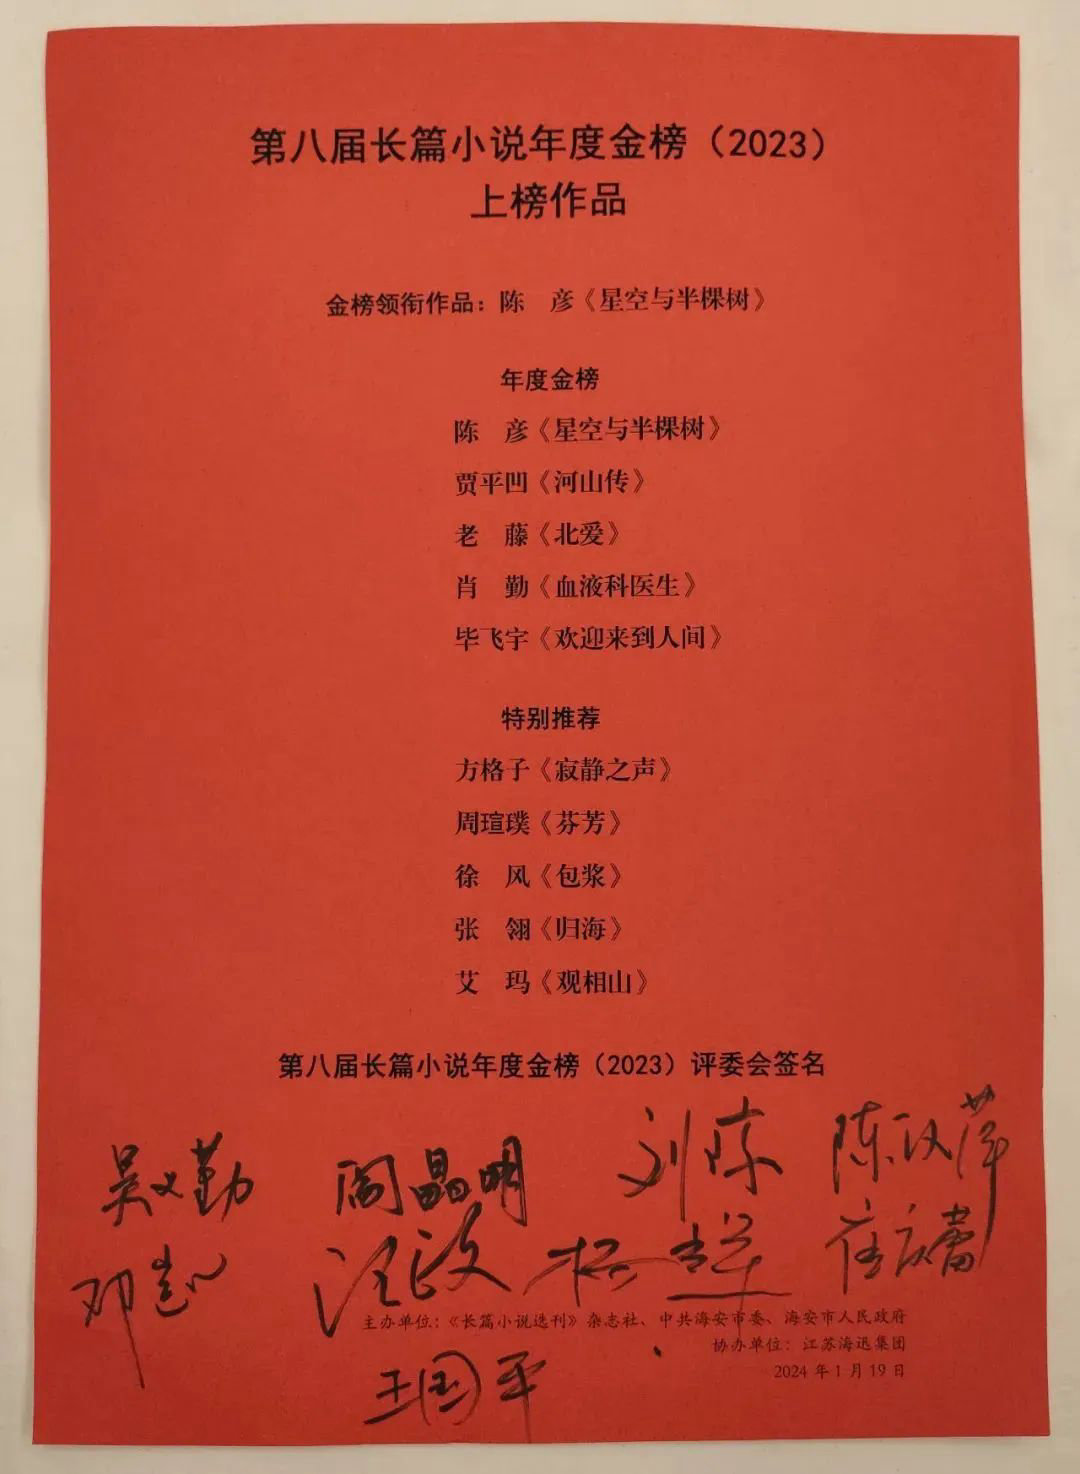 第八届长篇小说年度金榜（2023）
上榜作品
金榜领衔作品：陈　彦《星空与半棵树》
年度金榜
陈　彦《星空与半棵树》
贾平凹《河山传》
老　藤《北爱》
肖　勤《血液科医生》
毕飞宇《欢迎来到人间》
特别推荐
方格子《寂静之声》
周瑄璞《芬芳》
徐　风《包浆》
张　翎《归海》
艾　玛《观相山》
第八届长篇小说年度金榜（2023）评委会签名
吴义勤 阎晶明 刘琼 陈汉萍
汪政 崔庆蕾
主办单位：《长篇小说选刊》杂志社、中共海安市委、海安市人民政府
协办单位：江苏海迅集团
2024 年 1 月 19 日
王国平